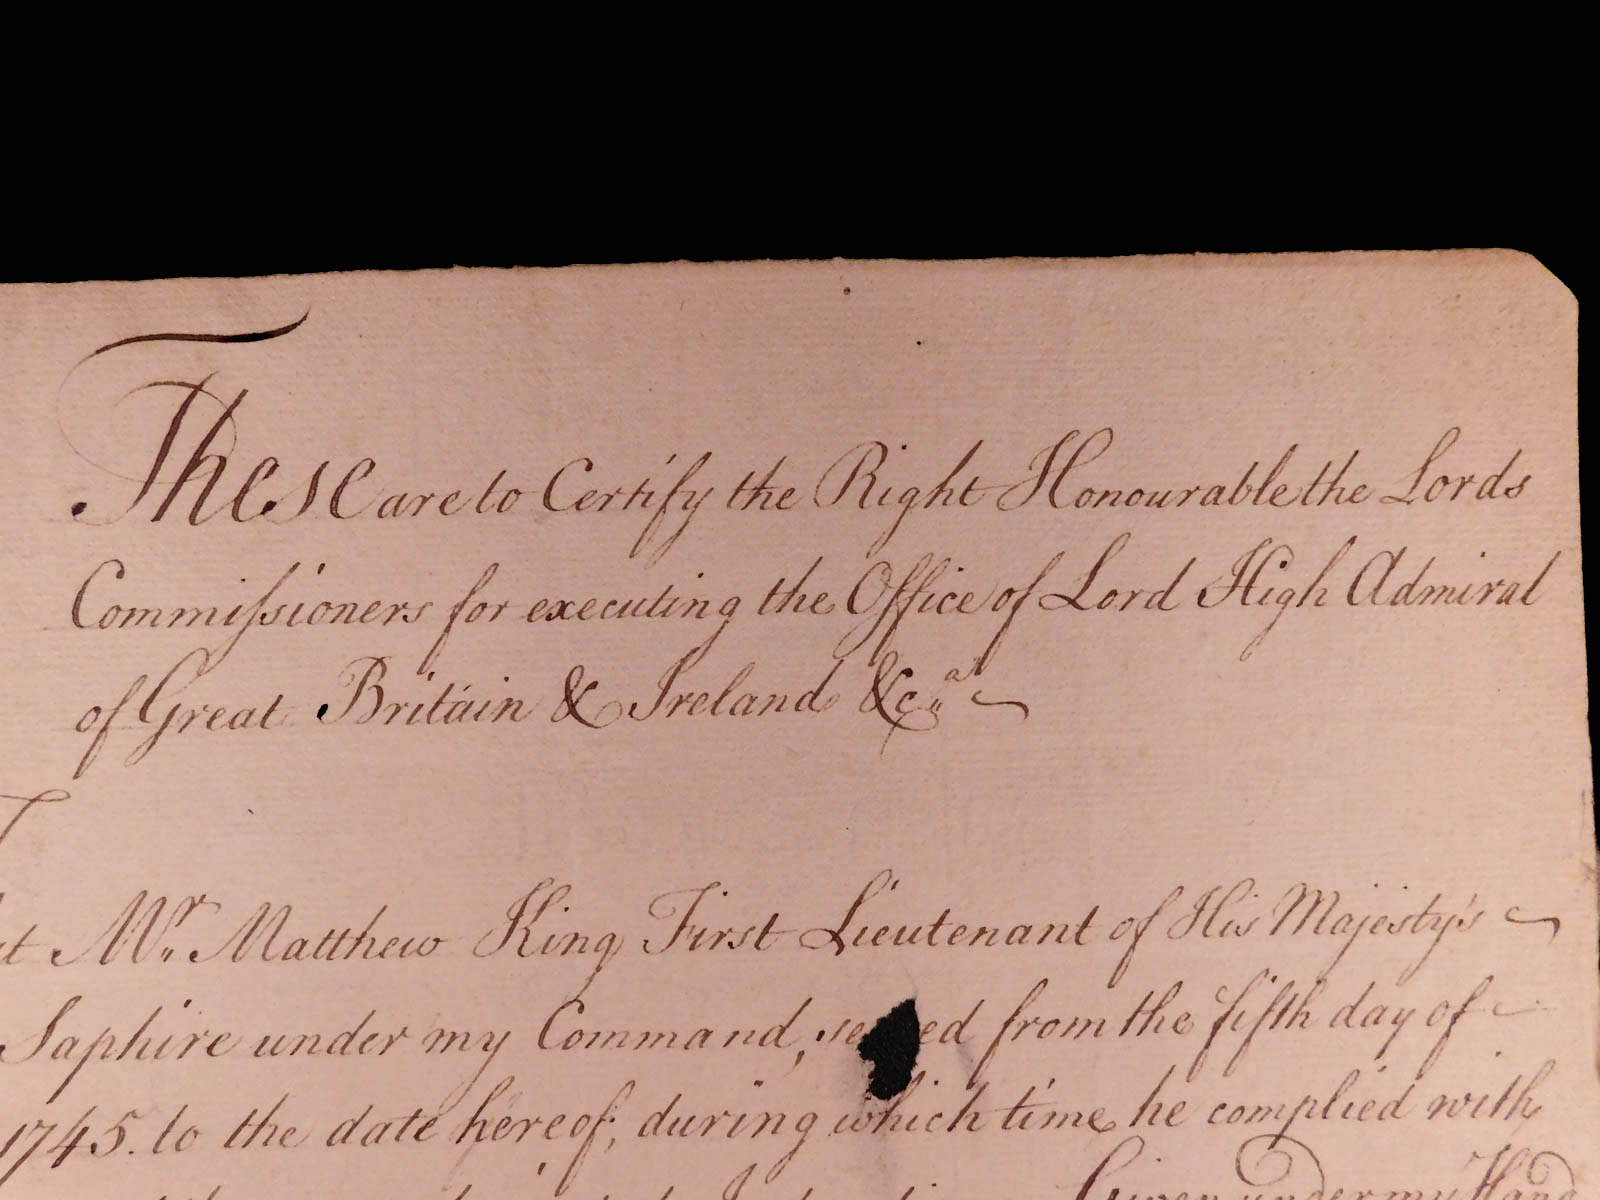 These are to Certify the Right Honourable the Lords
Commiſsioners for executing the Office of Lord High Admiral
of Great Britain & Ireland &c.ª
Mr. Matthew King First Lieutenant of His Majesty's
Saphire under my Command, se ed from the fifth day of
1745. to the date hereof; during which time he complied with
Given under my